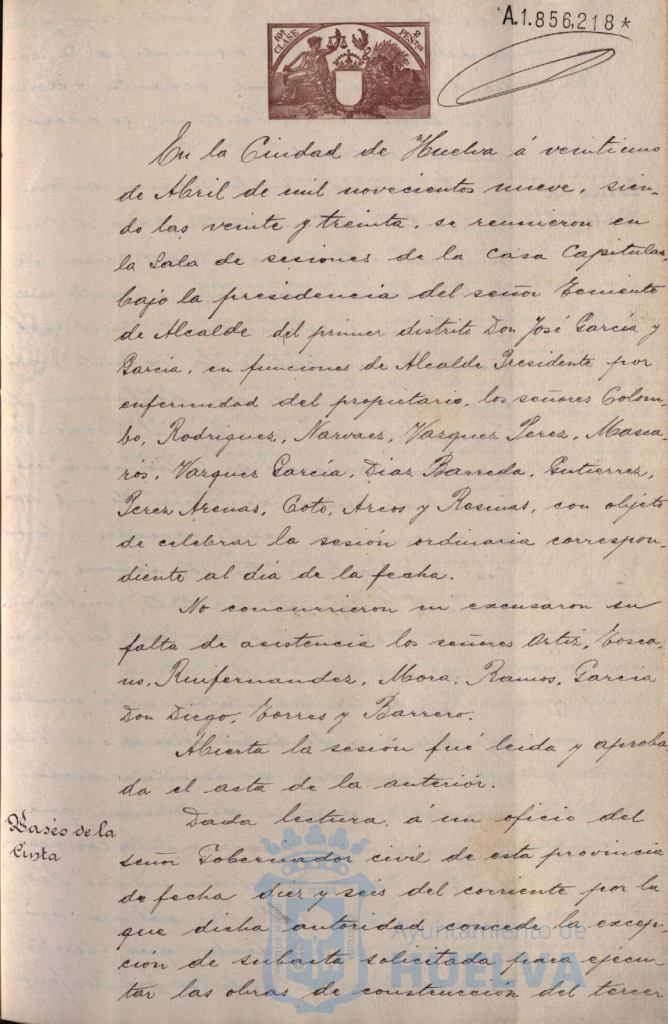 10ª CLASE
2 PESETAS
A.1.856,218*
En la Ciudad de Huelva á veintiuno
de Abril de mil novecientos nueve, sien-
do las veinte y treinta, se reunieron en
la Sala de sesiones de la Casa Capitular,
bajo la presidencia del señor Teniente
de Alcalde del primer distrito Don José García y
García, en funciones de Alcalde Presidente por
enfermedad del propietario, los señores Colom-
bo, Rodriguez, Narvaez, Vazquez Perez, Masca-
rós, Vazquez García, Diaz Barreda, Gutierrez,
Perez Arenas, Coto, Arcos y Resinas, con objeto
de celebrar la sesión ordinaria correspon-
diente al día de la fecha.
No concurrieron ni excusaron su
falta de asistencia los señores Ortiz, Tosca-
no, Ruifernandez, Mora, Ramos, Garcia
Don Diego, Torres y Barrero.
Abierta la sesión fué leida y aproba-
da el acta de la anterior.
Paseo de la
Cinta
Dada lectura á un oficio del
señor Gobernador civil de esta provincia
de fecha diez y seis del corriente por la
que dicha autoridad concede la excep-
ción de subasta solicitada para ejecu-
tar las obras de construcción del tercer
Ayuntamiento de
HUELVA